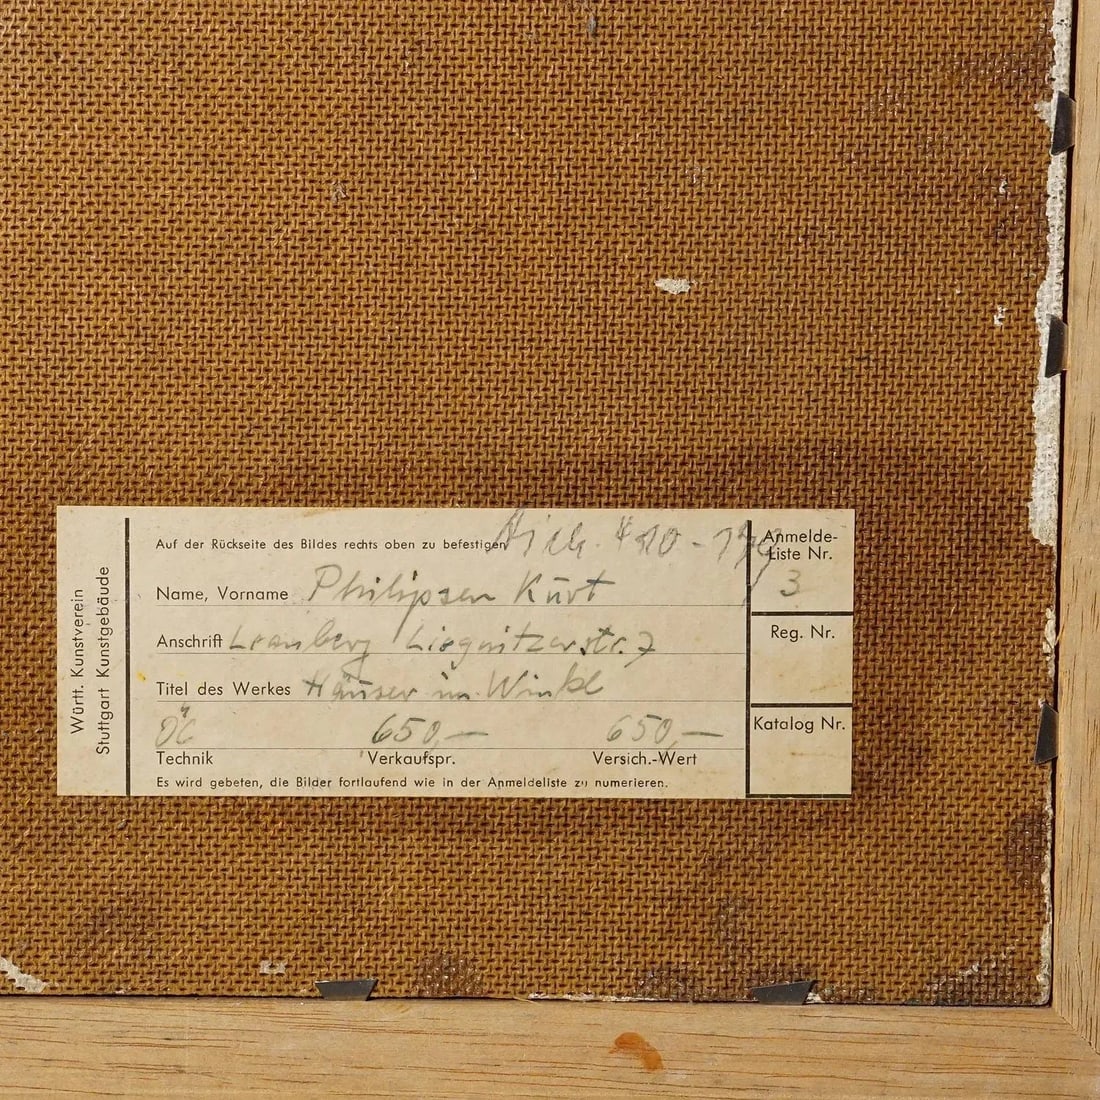 Württ. Kunstverein
Stuttgart Kunstgebäude
Auf der Rückseite des Bildes rechts oben zu befestigen
Name, Vorname Philipsen Kurt
Anschrift Leonberg Liegnitzerstr. 7
Titel des Werkes Häuser im Winkl
Öl 650,— 650,—
Technik Verkaufspr. Versich.-Wert
Es wird gebeten, die Bilder fortlaufend wie in der Anmeldeliste zu numerieren.
Anmelde-
Liste Nr.
3
Reg. Nr.
Katalog Nr.